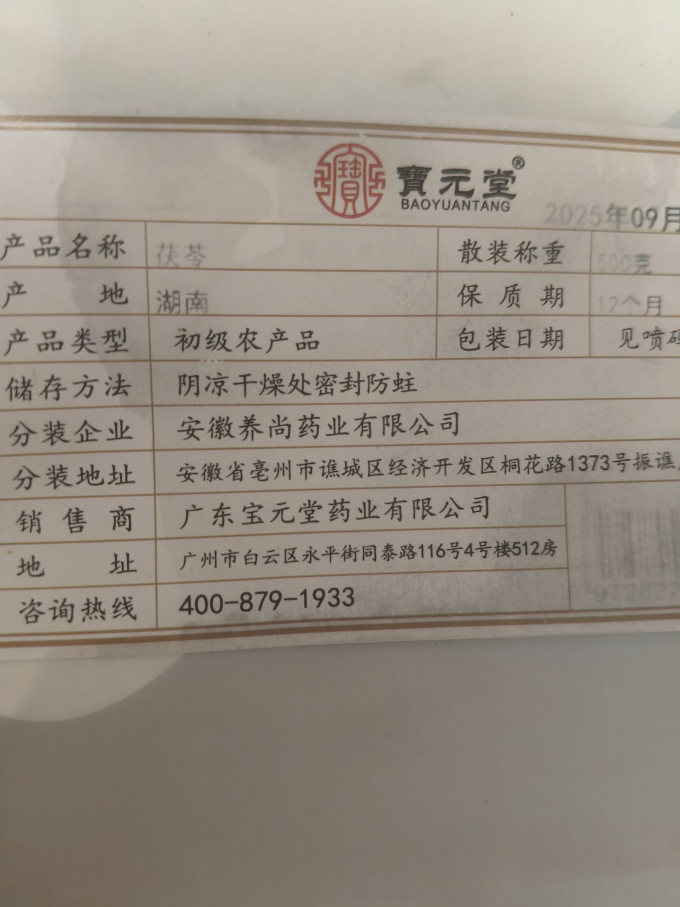 寶元堂®
BAOYUANTANG
2025年09月
产品名称 茯苓 散装称重 500克
产地 湖南 保质期 12个月
产品类型 初级农产品 包装日期 见喷码
储存方法 阴凉干燥处密封防蛀
分装企业 安徽养尚药业有限公司
分装地址 安徽省亳州市谯城区经济开发区桐花路1373号振谯
销售商 广东宝元堂药业有限公司
地址 广州市白云区永平街同泰路116号4号楼512房
咨询热线 400-879-1933